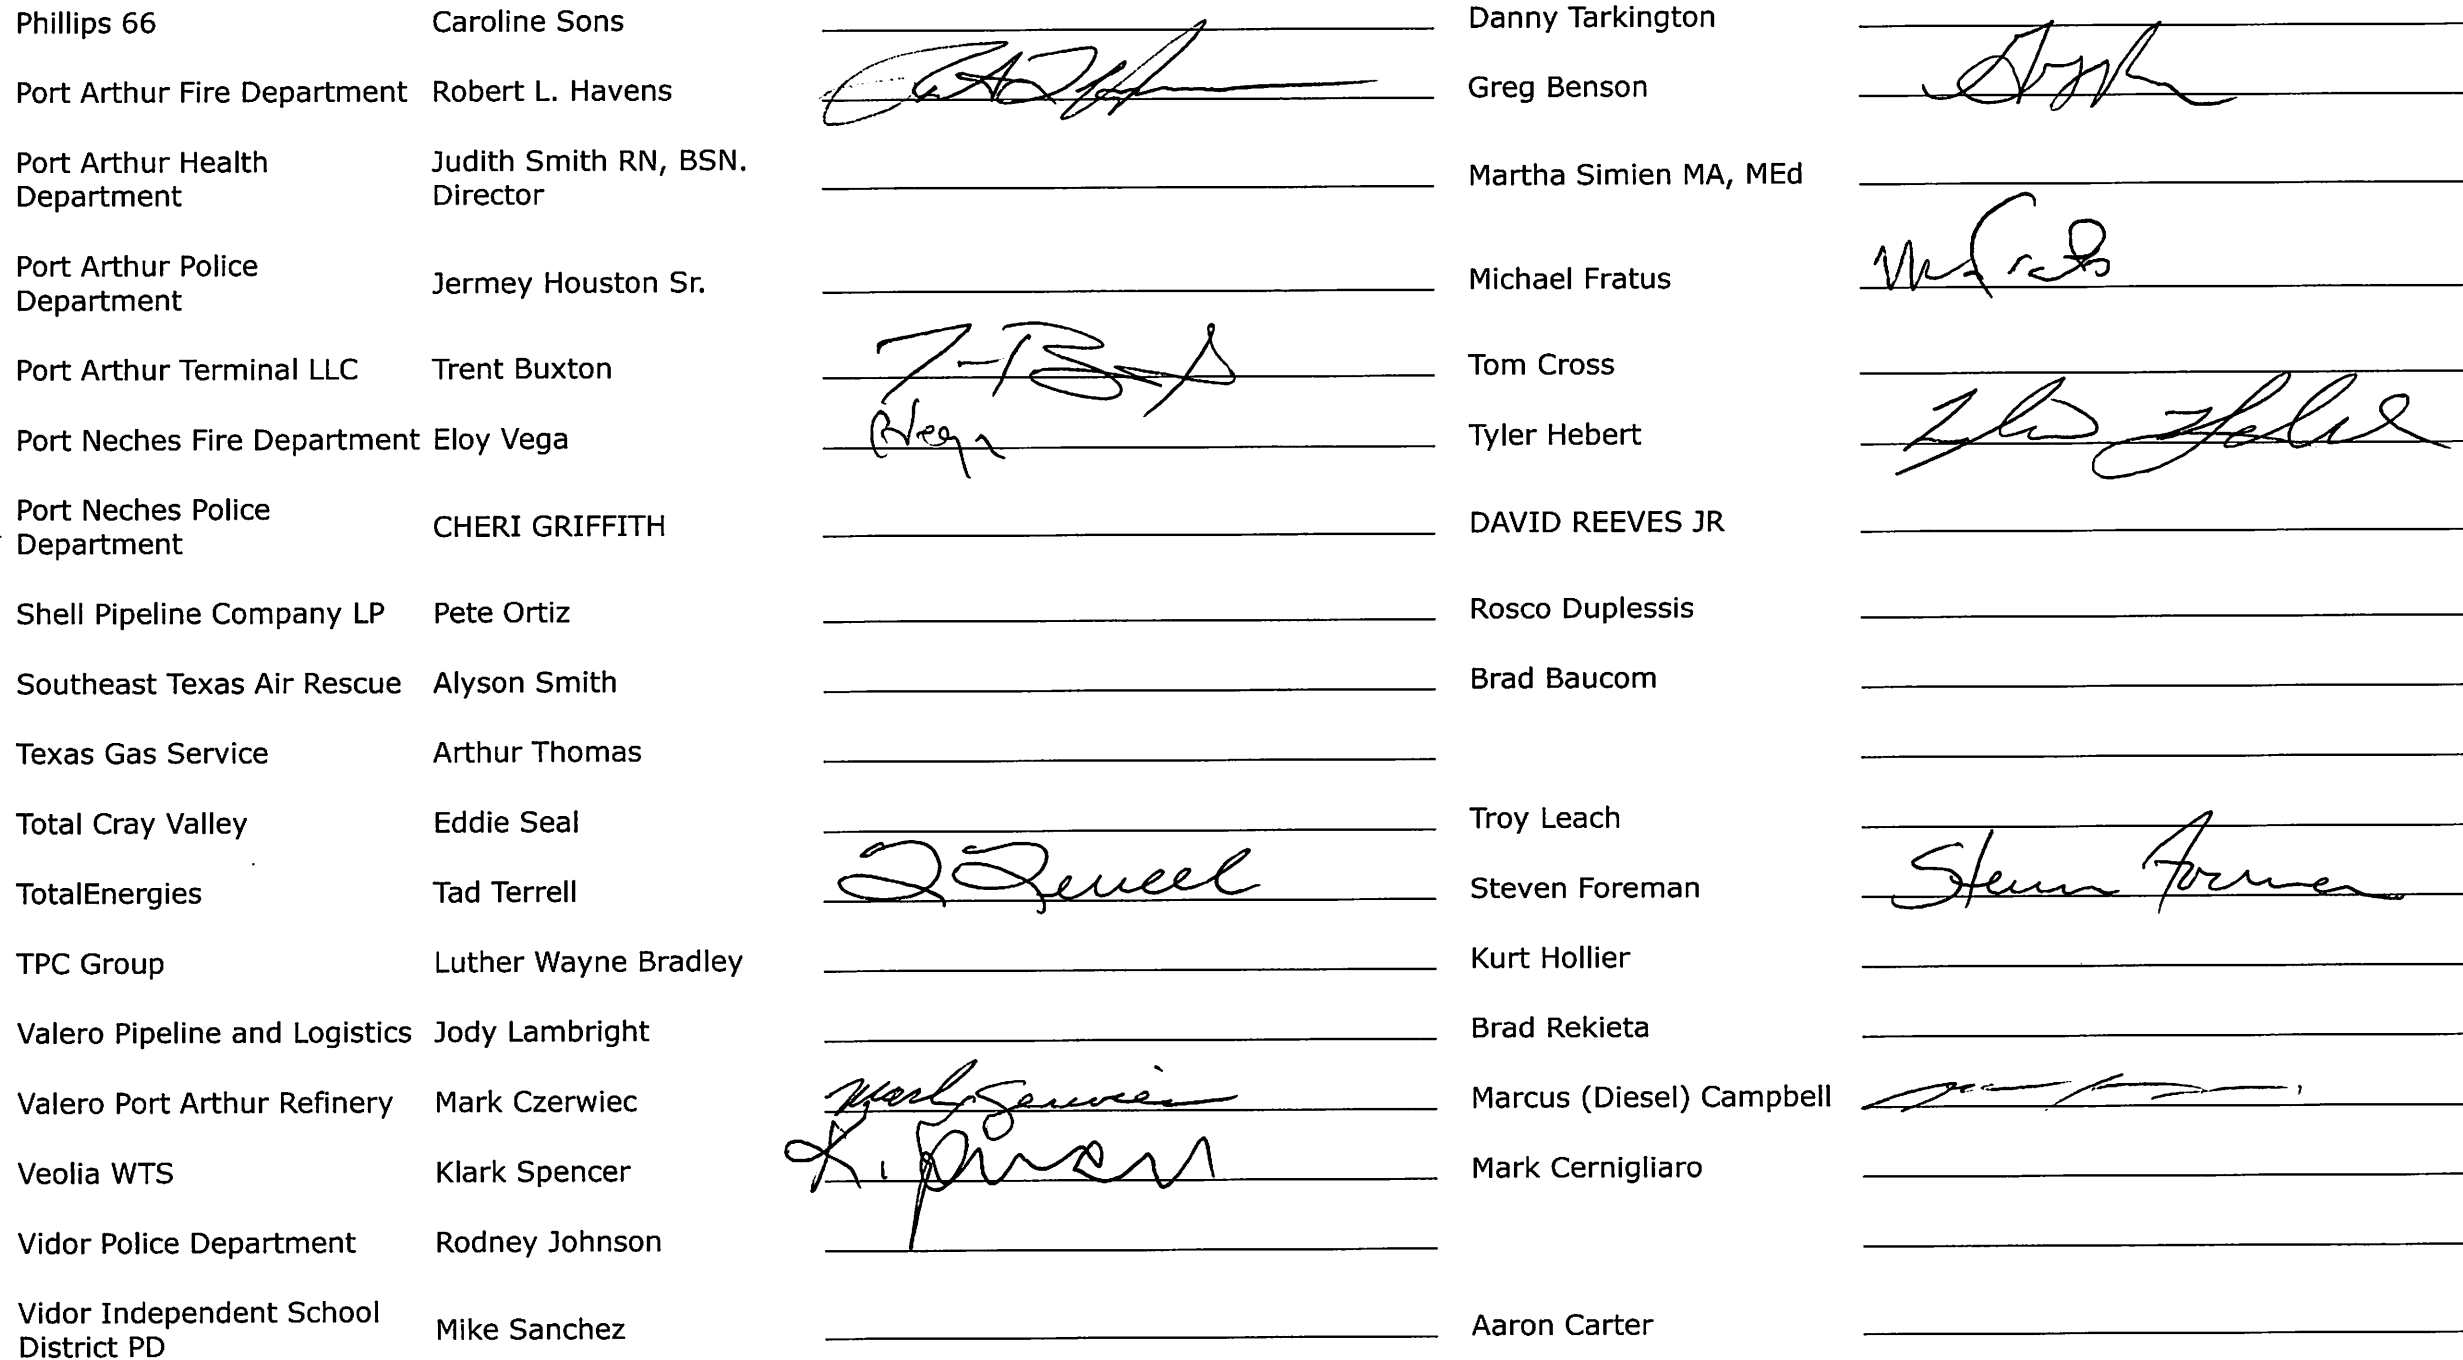 Phillips 66 Caroline Sons Danny Tarkington
Port Arthur Fire Department Robert L. Havens Greg Benson
Port Arthur Health Judith Smith RN, BSN. Martha Simien MA, MEd
Department Director
Port Arthur Police
Department Jermey Houston Sr. Michael Fratus
Port Arthur Terminal LLC Trent Buxton Tom Cross
Port Neches Fire Department Eloy Vega Tyler Hebert
Port Neches Police
Department CHERI GRIFFITH DAVID REEVES JR
Shell Pipeline Company LP Pete Ortiz Rosco Duplessis
Southeast Texas Air Rescue Alyson Smith Brad Baucom
Texas Gas Service Arthur Thomas
Total Cray Valley Eddie Seal Troy Leach
TotalEnergies Tad Terrell Steven Foreman Steven Foreman
TPC Group Luther Wayne Bradley Kurt Hollier
Valero Pipeline and Logistics Jody Lambright Brad Rekieta
Valero Port Arthur Refinery Mark Czerwiec Marcus (Diesel) Campbell
Veolia WTS Klark Spencer Mark Cernigliaro
Vidor Police Department Rodney Johnson
Vidor Independent School
District PD Mike Sanchez Aaron Carter